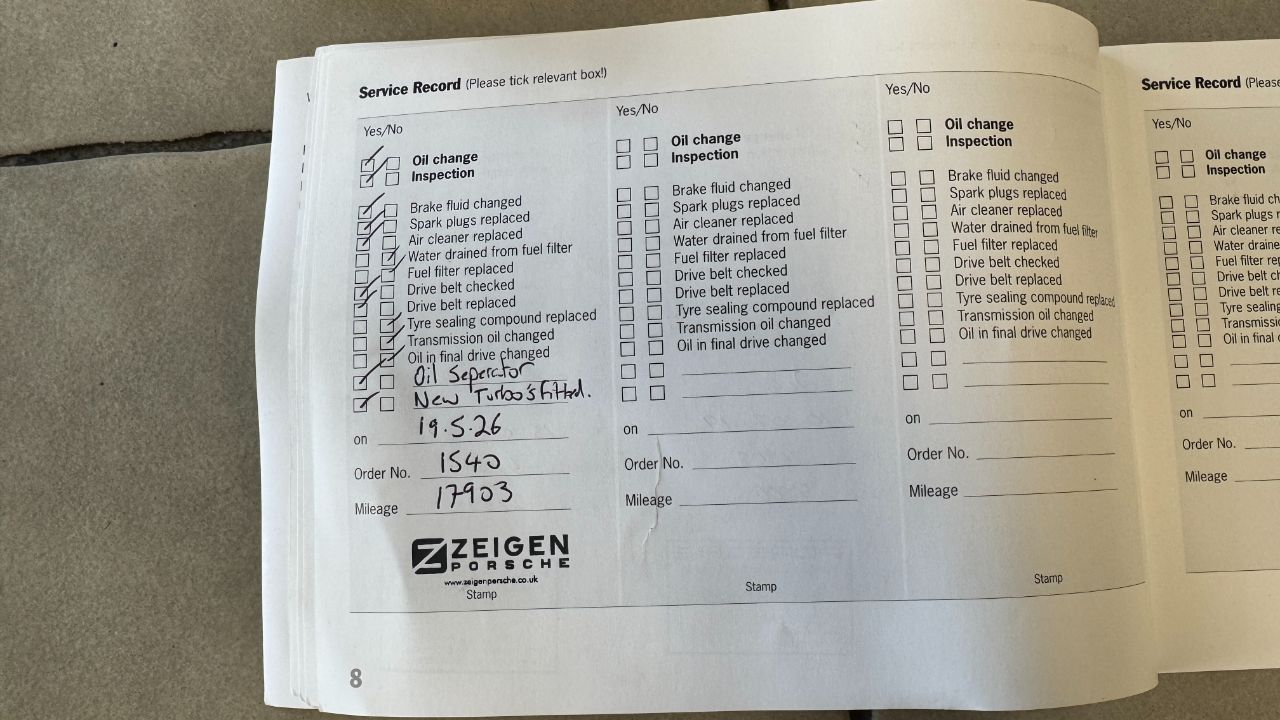 Service Record (Please tick relevant box!)
Yes/No
Oil change
Inspection
Brake fluid changed
Spark plugs replaced
Air cleaner replaced
Water drained from fuel filter
Fuel filter replaced
Drive belt checked
Drive belt replaced
Tyre sealing compound replaced
Transmission oil changed
Oil in final drive changed
Oil Seperator
New Turbo's fitted.
on 19.5.26
Order No. 1540
Mileage 17903
ZEIGEN
PORSCHE
www.zeigenporsche.co.uk
Stamp
8
Yes/No
Oil change
Inspection
Brake fluid changed
Spark plugs replaced
Air cleaner replaced
Water drained from fuel filter
Fuel filter replaced
Drive belt checked
Drive belt replaced
Tyre sealing compound replaced
Transmission oil changed
Oil in final drive changed
on
Order No.
Mileage
Stamp
Yes/No
Oil change
Inspection
Brake fluid changed
Spark plugs replaced
Air cleaner replaced
Water drained from fuel filter
Fuel filter replaced
Drive belt checked
Drive belt replaced
Tyre sealing compound replaced
Transmission oil changed
Oil in final drive changed
on
Order No.
Mileage
Stamp
Service Record (Pleas
Yes/No
Oil change
Inspection
Brake fluid ch
Spark plugs r
Air cleaner re
Water draine
Fuel filter rep
Drive belt ch
Drive belt re
Tyre sealing
Transmissi
Oil in final
on
Order No.
Mileage